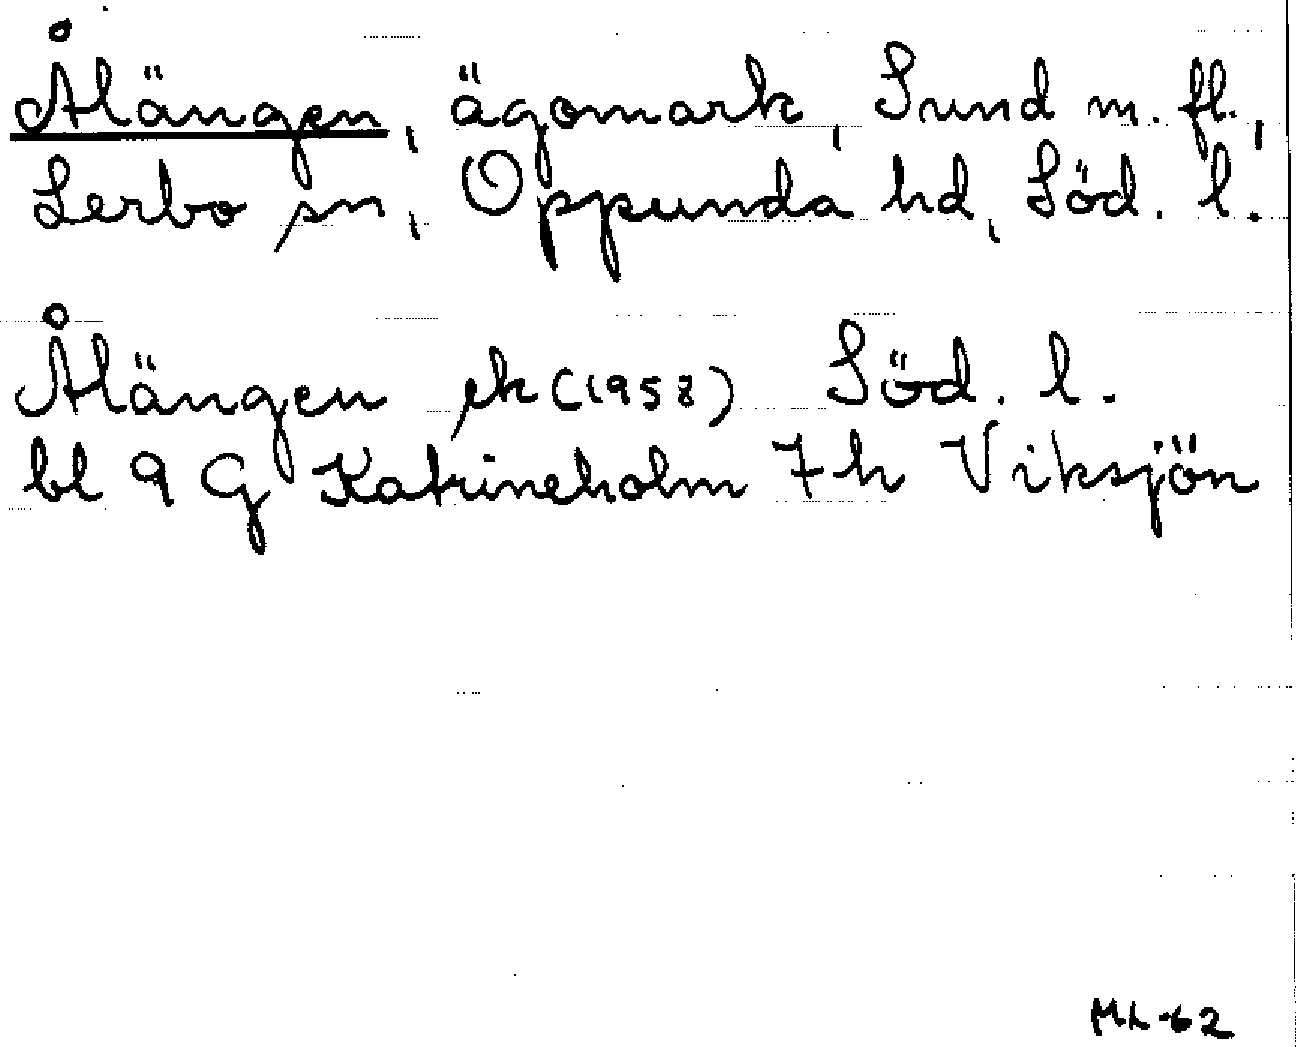 Ålängen, ägomark, Sund m. fl.,
Lerbo sn, Oppunda hd, Söd. l.
Ålängen ek (1958) Söd. l.
bl 9 G Katrineholm 7 h Viksjön
ML-62